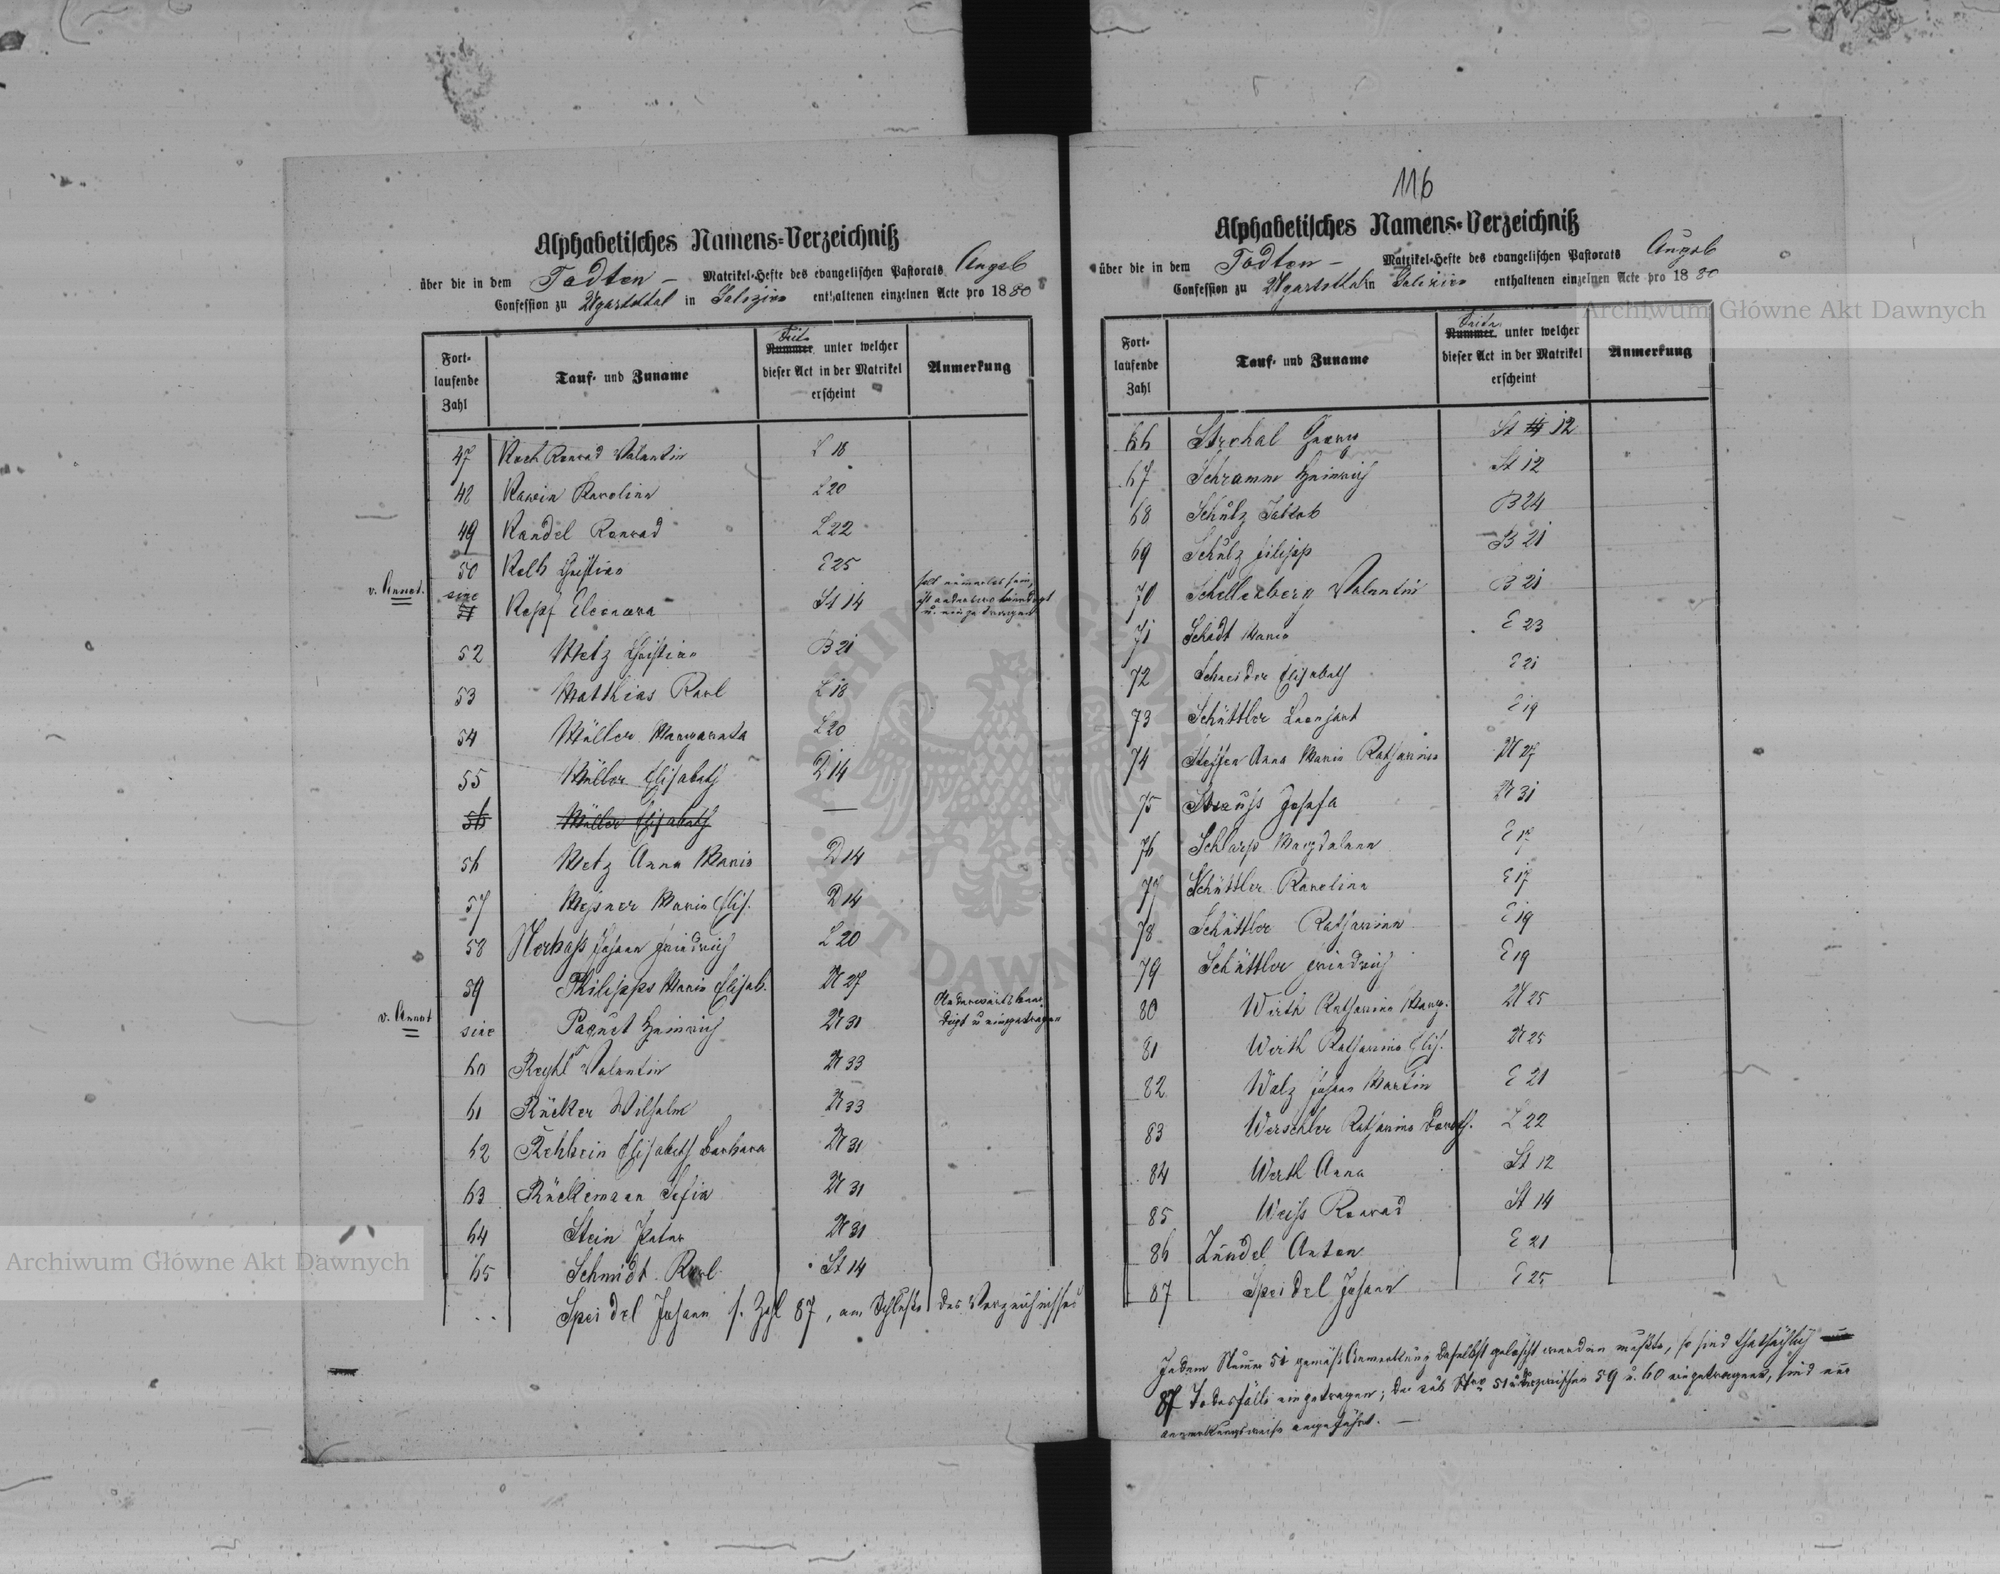 116
Alphabetisches Namens-Verzeichniß
über die in dem Todten – Matrikel-Hefte des evangelischen Pastorats Augsb
Confession zu Ugartsthal in Galizien enthaltenen einzelnen Acte pro 1880
Fort-
laufende
Zahl
Tauf- und Zuname
Seite
Nummer unter welcher
dieser Act in der Matrikel
erscheint
Anmerkung
47 Koch Konrad Valentin L 18
48 Karolina L 20
49 Kandel Konrad L 22
50 Kolb Christina E 25
v. Annot. sine 51 Eleonora St 14
52 Metz Christina B 21
53 Matthias Karl L 18
54 Müller Margareta L 20
55 Müller Elisabeth D 14
56 Müller Elisabeth —
56 Metz Anna Maria D 14
57 Maria Elis. D 14
58 Johann Friedrich L 20
59 Philipps Maria Elisab. U 27
v. Annot sine Paquet Heinrich U 31 Anderwärts beer-
digt u eingetragen
60 Valentin U 33
61 Rücker Wilhelm U 33
62 Rehbein Elisabeth Barbara U 31
63 Rückemann Sofia U 31
64 Stein Peter U 31
65 Schmidt Karl St 14
. . Speidel Johann s. Zahl 87, am Schluße des Verzeichnisses
Alphabetisches Namens-Verzeichniß
über die in dem Todten – Matrikel-Hefte des evangelischen Pastorats Augsb
Confession zu Ugartsthal in Galizien enthaltenen einzelnen Acte pro 1880
Fort-
laufende
Zahl
Tauf- und Zuname
Seite
Nummer unter welcher
dieser Act in der Matrikel
erscheint
Anmerkung
66 Strohal Georg St 12
67 Schramm Heinrich St 12
68 Schulz Jakob B 24
69 Schulz Filipp B 21
70 Schellenberg Valentin B 21
71 Schadt Maria E 23
72 Schneider Elisabeth E 21
73 Schüttler Leonhart E 19
74 Steffen Anna Maria Katharina U 27
75 Strauss Josefa U 31
76 Schlarp Magdalena E 17
77 Schüttler Karolina E 17
78 Schüttler Katharina E 19
79 Schüttler Friedrich E 19
80 Wirth Katharina Marg. U 25
81 Werth Katharina Elis. U 25
82 Walz Johann Martin E 21
83 Werschler Katharina Doroth. L 22
84 Werth Anna St 12
85 Weiss Konrad St 14
86 Zundel Anton E 21
87 Speidel Johann E 25
Indem Numer 51 gemäß Anmerkung daselbst gelöscht werden mußte, so sind thatsächlich
87 Todesfälle eingetragen; die sub Nro 51 u. zwischen 59 u. 60 eingetragenen, sind nur
anmerkungsweise angeführt. —
Archiwum Główne Akt Dawnych
Archiwum Główne Akt Dawnych
ARCHIWUM GŁÓWNE AKT DAWNYCH